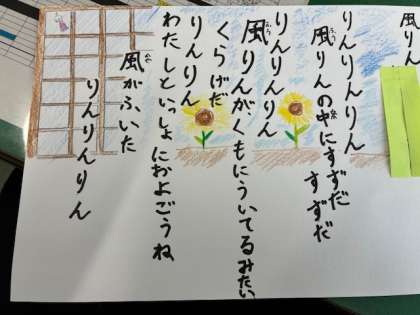 風りん
りんりんりん
風りんの中にすずだ
すずだ
りんりんりん
風りんが、くもにういてるみたい
くらげだ
りんりん
わたしといっしょにおよごうね
風がふいた
りんりんりん